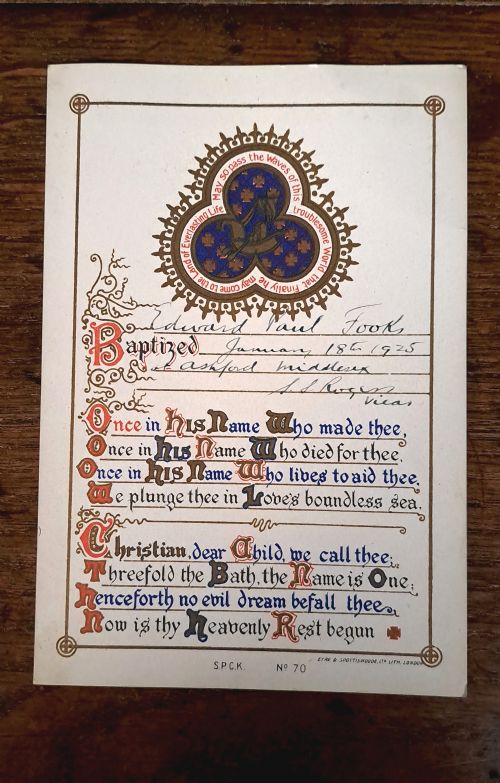 May so pass the Waves of this troublesome World that Finally he may Come to the Land of Everlasting Life
Edward Paul Fooks
Baptized January 18th 1925
at Ashford Middlesex
Rogers
Vicar
Once in His Name Who made thee,
Once in his Name Who died for thee,
Once in his Name Who lives to aid thee,
We plunge thee in Love's boundless sea.
Christian, dear Child, we call thee;
Threefold the Bath, the Name is One;
henceforth no evil dream befall thee,
Now is thy heavenly Rest begun
S.P.C.K. No 70
EYRE & SPOTTISWOODE, LTD LITH. LONDON